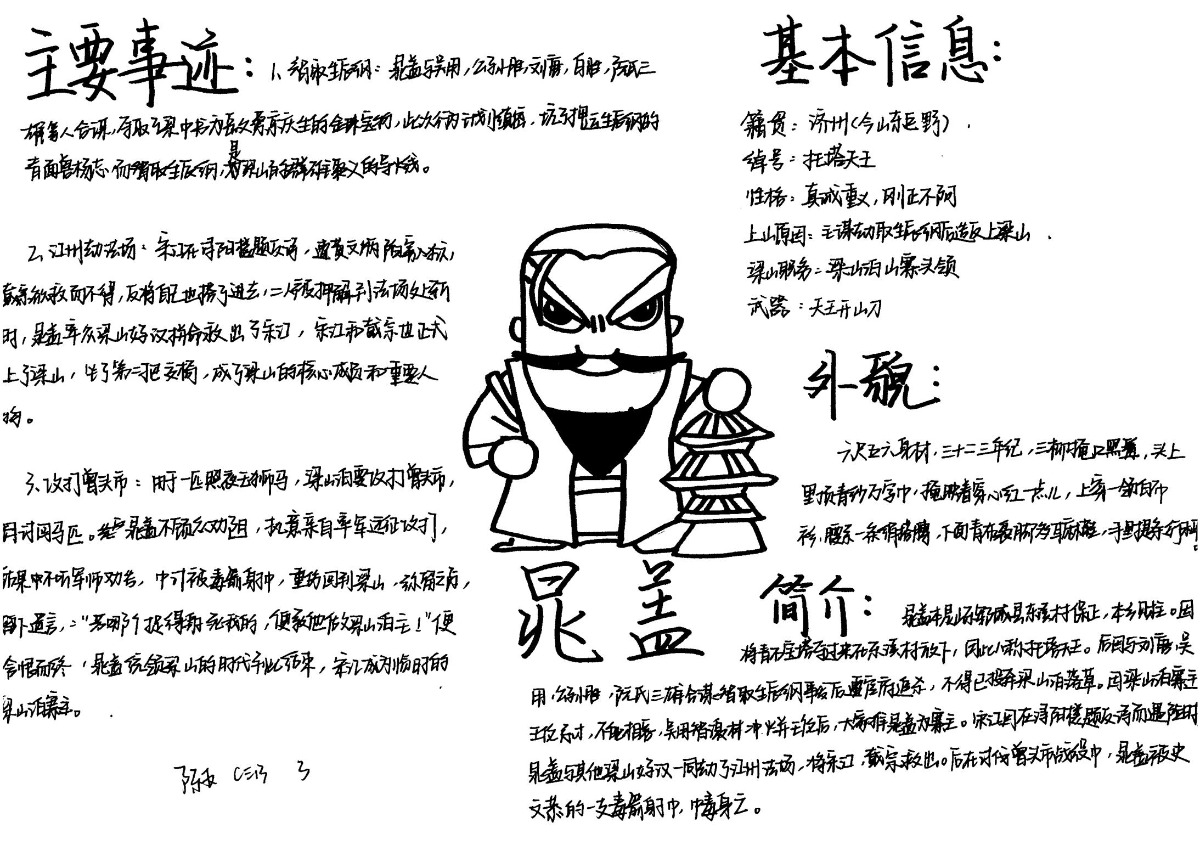 主要事迹：1、智取生辰纲：晁盖与吴用，公孙胜，刘唐，白胜，阮氏三
雄等人合谋，夺取了梁中书为岳父寿辰庆生的金珠宝物，此次行为计划缜密，坑了押运生辰纲的
青面兽杨志，而智取生辰纲，是为梁山的群雄聚义的导火线。
2、江州劫法场：宋江在浔阳楼题反诗，遭黄文炳陷害入狱，
戴宗欲救而不得，反将自己也搭了进去，二人被押解到法场处斩
时，晁盖率众梁山好汉拚命救出了宋江，宋江和戴宗也正式
上了梁山，坐了第二把交椅，成了梁山的核心成员和重要人
物。
3、攻打曾头市：由于一匹照夜玉狮马，梁山泊要攻打曾头市，
讨回马匹。晁盖不顾众劝阻，执意亲自率军远征攻打，
结果中不听军师劝告，中计被毒箭射中，重伤回到梁山，
留下遗言，："若哪个捉得射死我的，便教他做梁山泊主！"便
含恨而终，晁盖统领梁山的时代至此结束，宋江成为临时的
梁山泊寨主。
基本信息：
籍贯：济州（今山东巨野）.
绰号：托塔天王
性格：真诚重义，刚正不阿
上山原因：主谋劫取生辰纲后造反上梁山.
梁山职务：梁山泊山寨头领
武器：天王开山刀
外貌：
六尺五六身材，三十二三年纪，三柳掩口髭髯，头上
里顶青纱万字巾，掩映着穿心红一点儿，上穿一领白布
衫，腰系一条绢搭膊，下面青布裹脚多耳麻鞋，手里提条朴刀。
晁盖
简介：晁盖本是郓城县东溪村保正，本乡财主。因
将青石宝塔夺过来在东溪村放下，因此人称托塔天王。后因与刘唐，吴
用，公孙胜，阮氏三雄合谋智取生辰纲事发后遭官府追杀，不得已投奔梁山泊落草。因梁山泊寨主
王伦不才，不能相容，吴用智激林冲火并王伦后，大家推晁盖为寨主。宋江因在浔阳楼题反诗而遇险时
晁盖与其他梁山好汉一同劫了江州法场，将宋江，戴宗救出。后在讨伐曾头市战役中，晁盖被史
文恭的一支毒箭射中，中毒身亡。